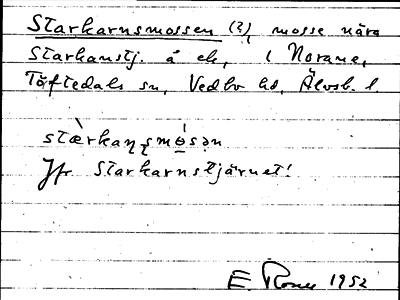 Starkarnsmossen (?), mosse nära
Starkanstj. å ek, i Norane,
Töftedals sn, Vedbo hd, Älvsb. l
stæ̀rkaɳʂmó̠sən
Jfr Starkarnstjärnet!
E. 1952